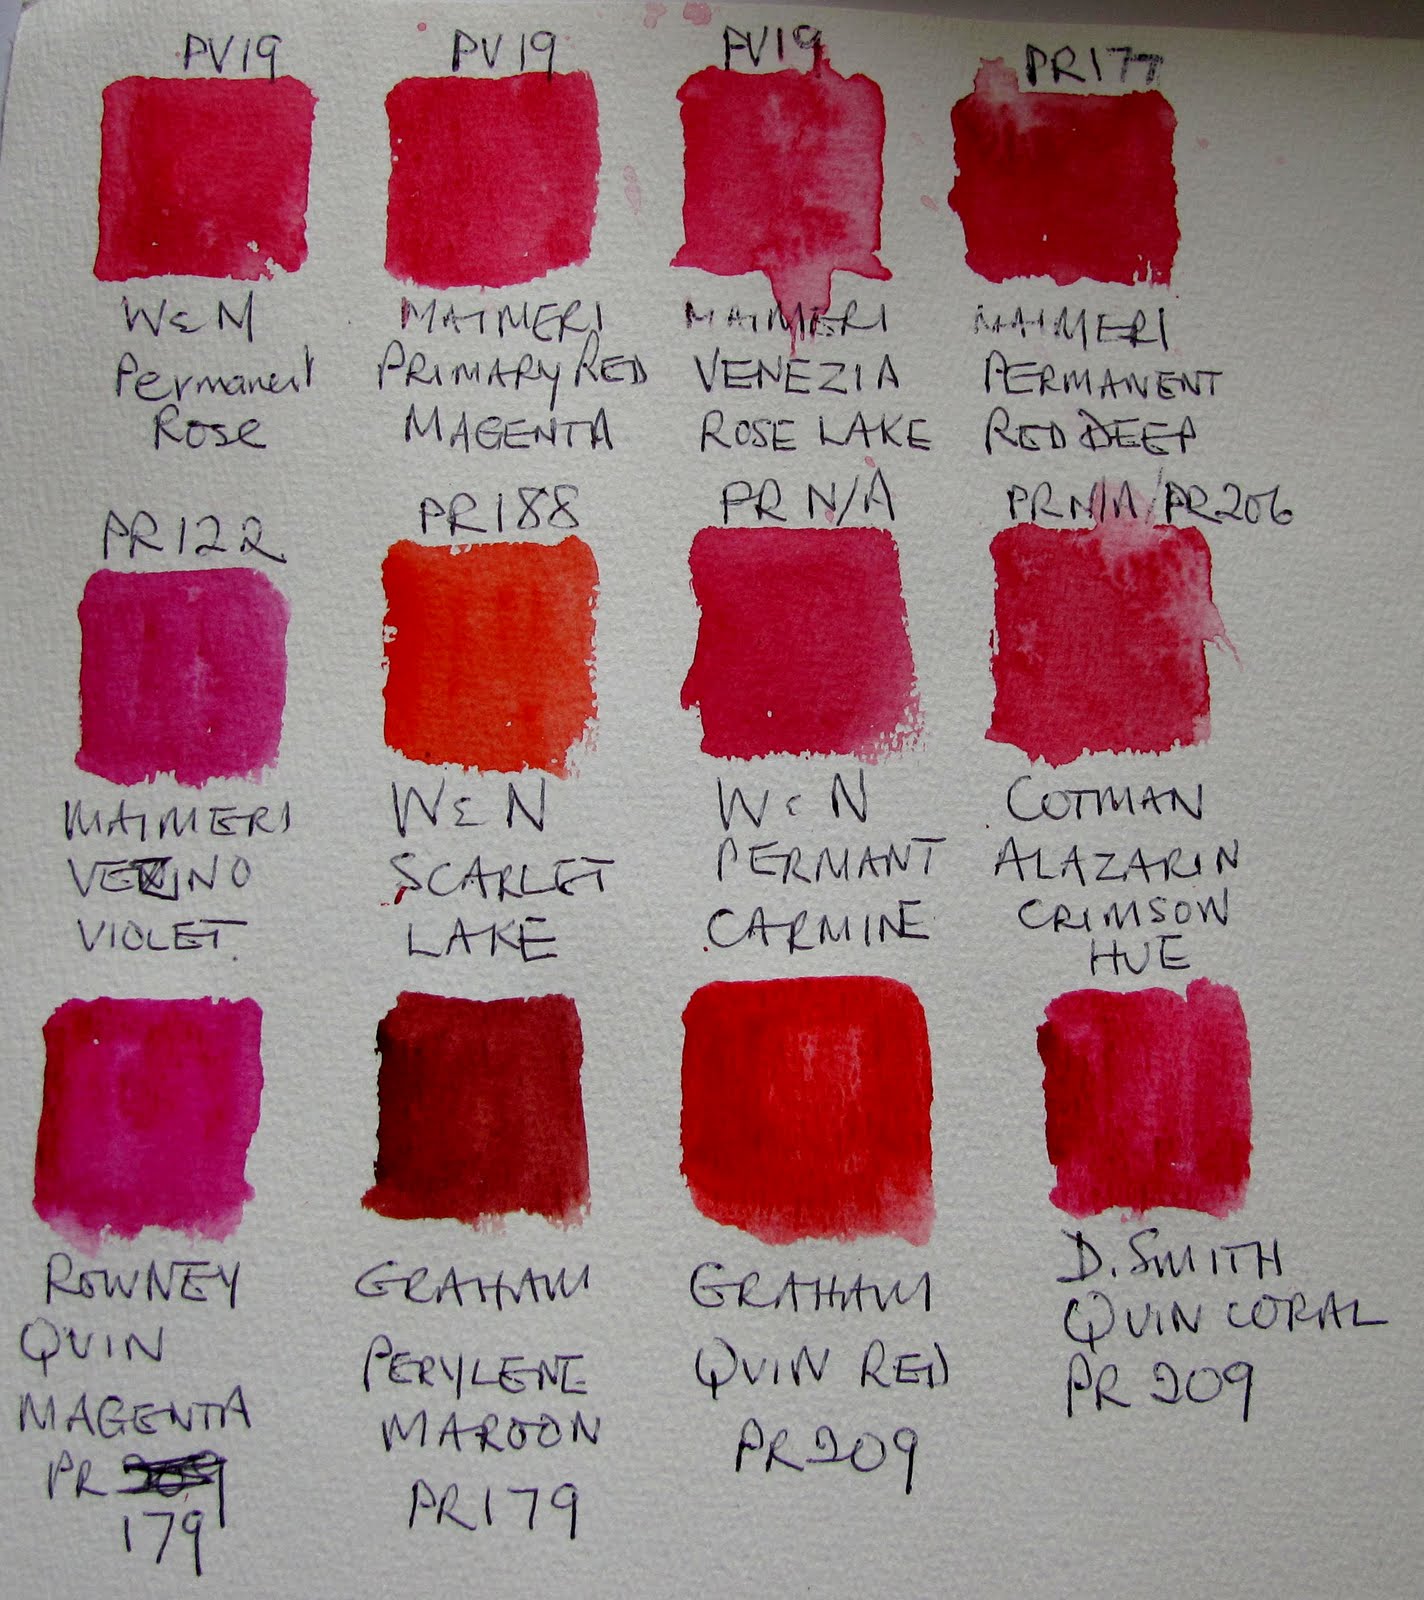 PV19
PV19
PV19
PR177
W & N
Permanent
Rose
MAIMERI
PRIMARY RED
MAGENTA
MAIMERI
VENEZIA
ROSE LAKE
MAIMERI
PERMANENT
RED DEEP
PR122
PR188
PR N/A
PR N/A / PR206
MAIMERI
VERZINO
VIOLET
W & N
SCARLET
LAKE
W & N
PERMANT
CARMINE
COTMAN
ALAZARIN
CRIMSON
HUE
ROWNEY
QUIN
MAGENTA
PR 209
179
GRAHAM
PERYLENE
MAROON
PR179
GRAHAM
QUIN RED
PR209
D. SMITH
QUIN CORAL
PR 209